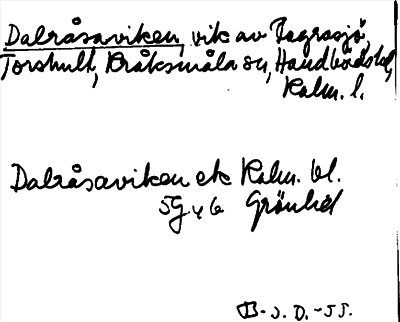 Dalråsaviken, vik av Bagrasjö,
Torshult, Kråksmåla sn, Handbörds hd,
Kalm. l.
Dalråsaviken ek Kalm. bl.
5G v 6 Grönhd
B-J.D.-55.